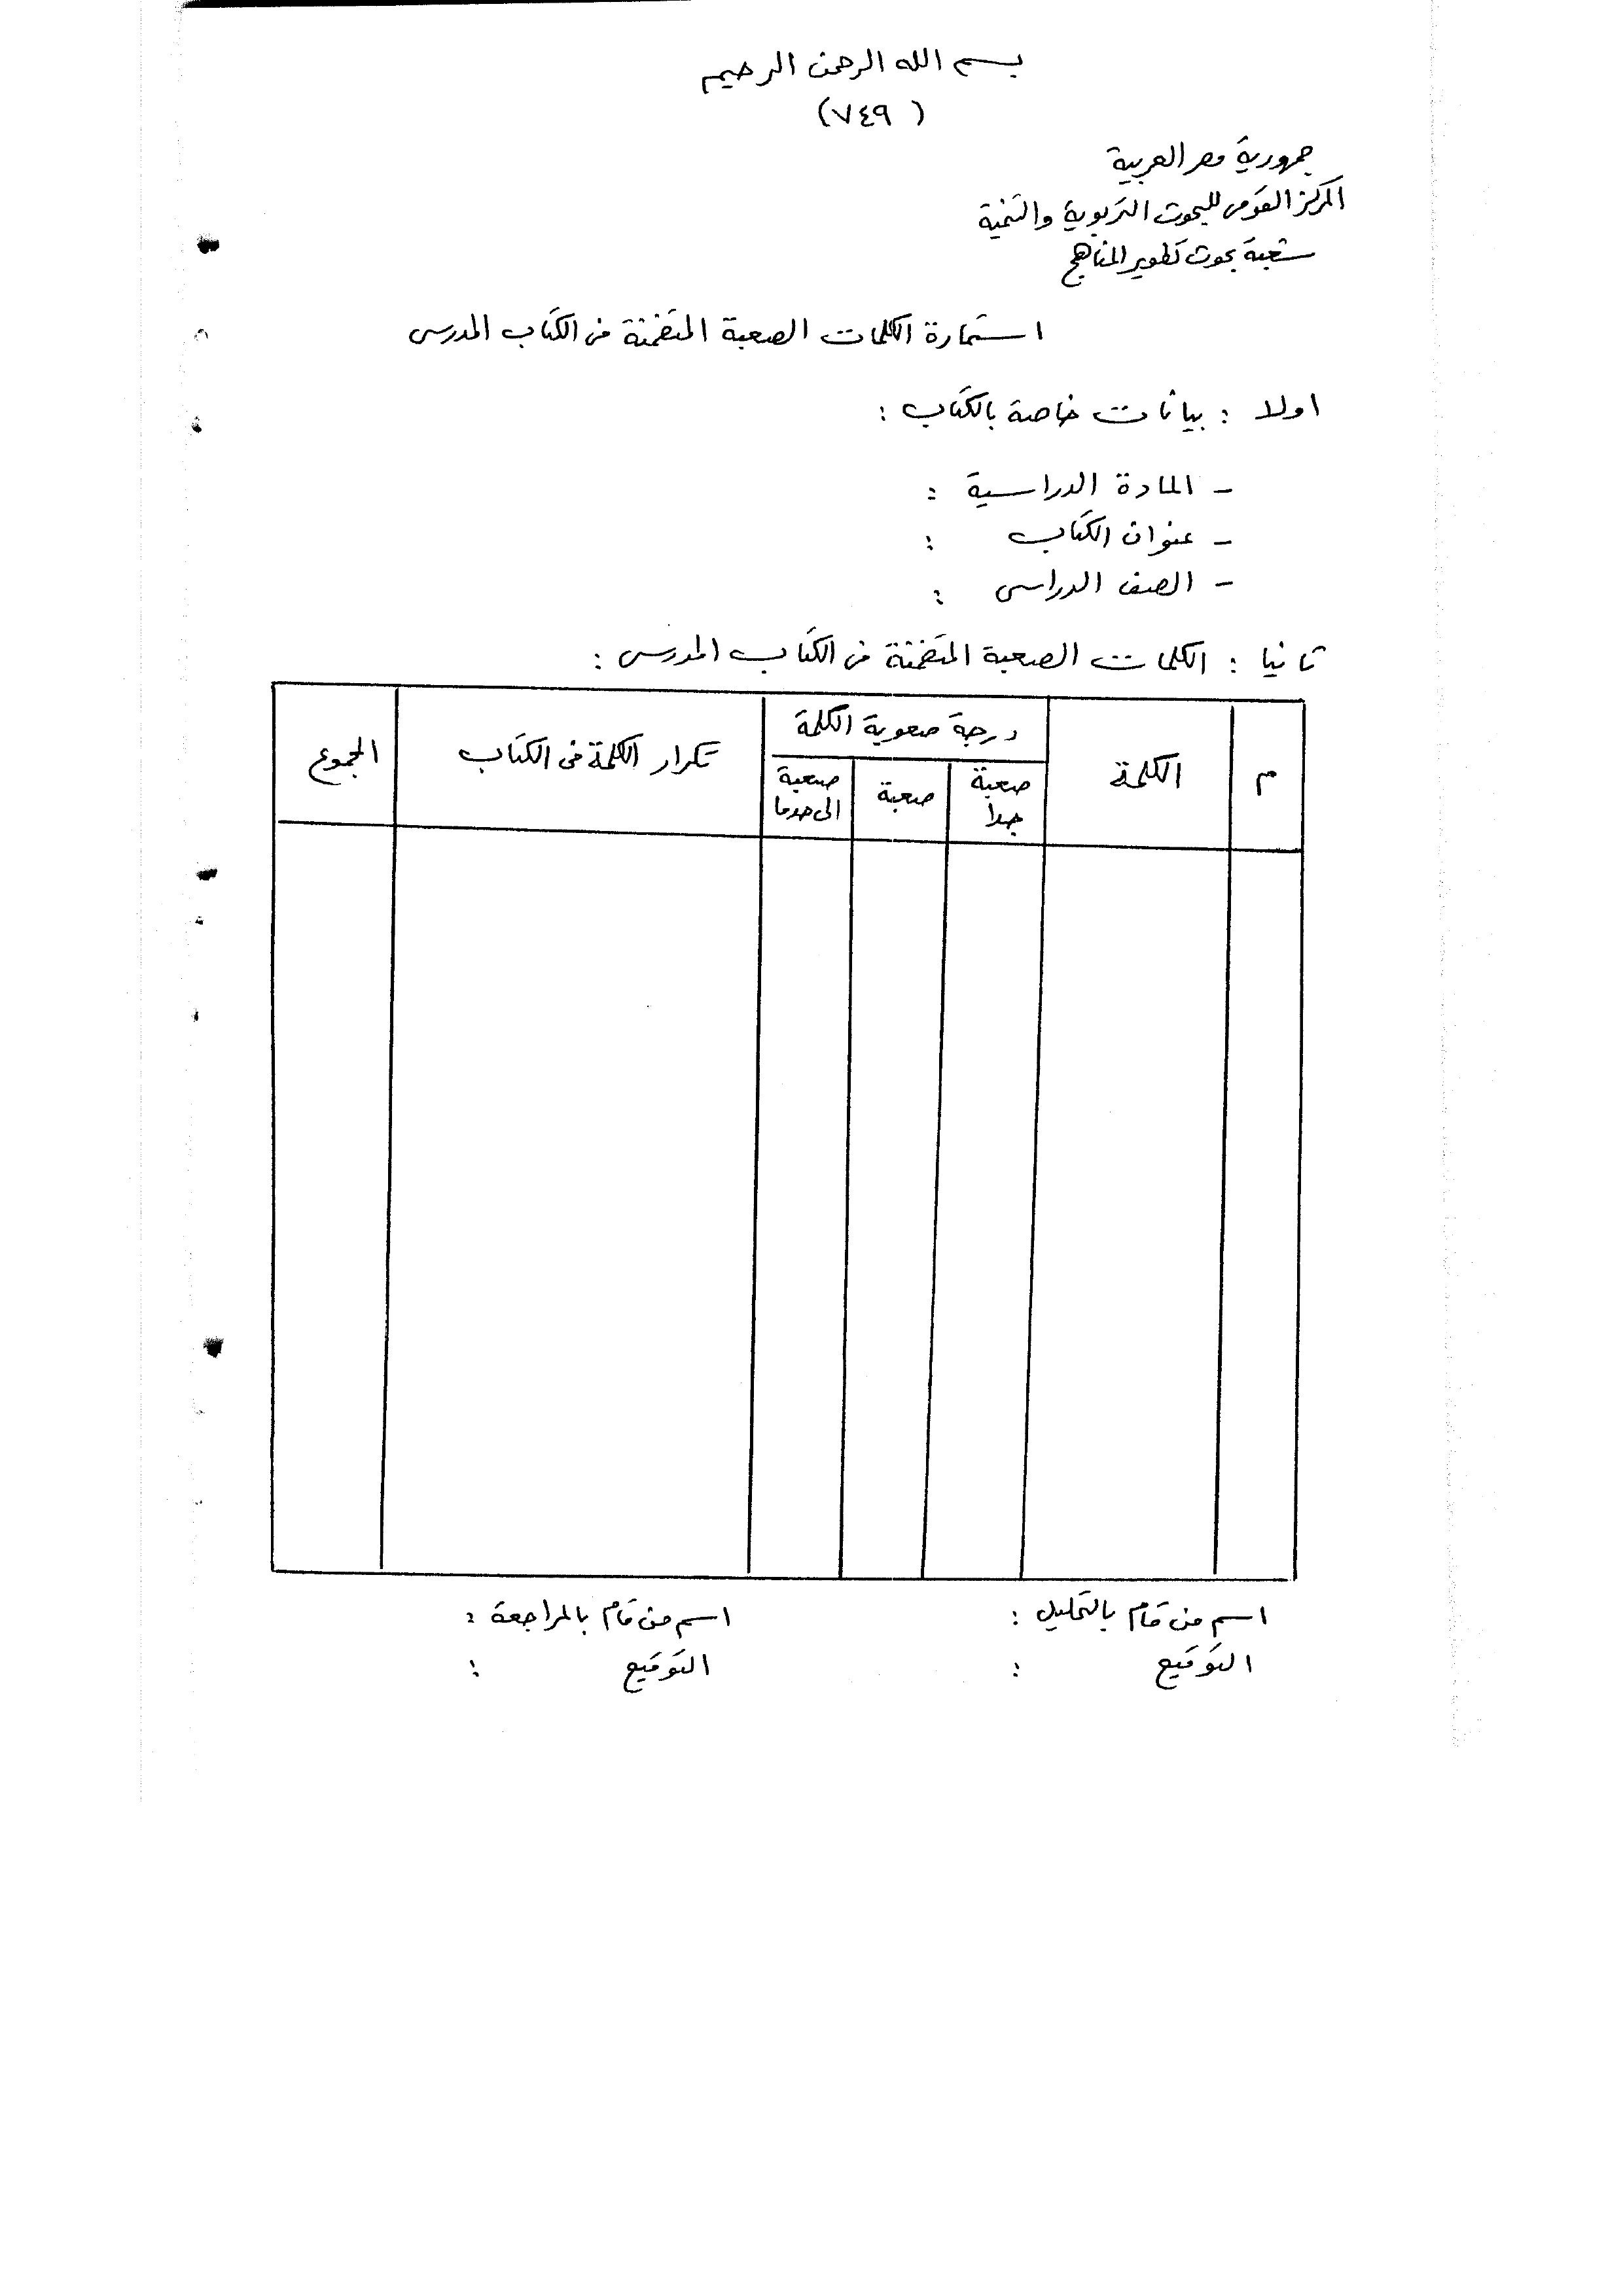 بسم الله الرحمن الرحيم
(٧٤٩)
جمهورية مصر العربية
المركز القومى للبحوث التربوية والتنمية
شعبة بحوث تطوير المناهج
استمارة الكلمات الصعبة المتضمنة فى الكتاب المدرسى
اولا : بيانات خاصة بالكتاب :
- المادة الدراسية :
- عنوان الكتاب :
- الصف الدراسى :
ثانيا : الكلمات الصعبة المتضمنة فى الكتاب المدرسى :
م الكلمة درجة صعوبة الكلمة تكرار الكلمة فى الكتاب المجموع
صعبة جدا صعبة صعبة الى حد ما
اسم من قام بالتحليل : اسم من قام بالمراجعة :
التوقيع : التوقيع :